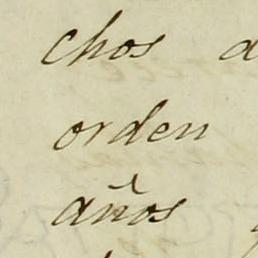 chos
orden
años